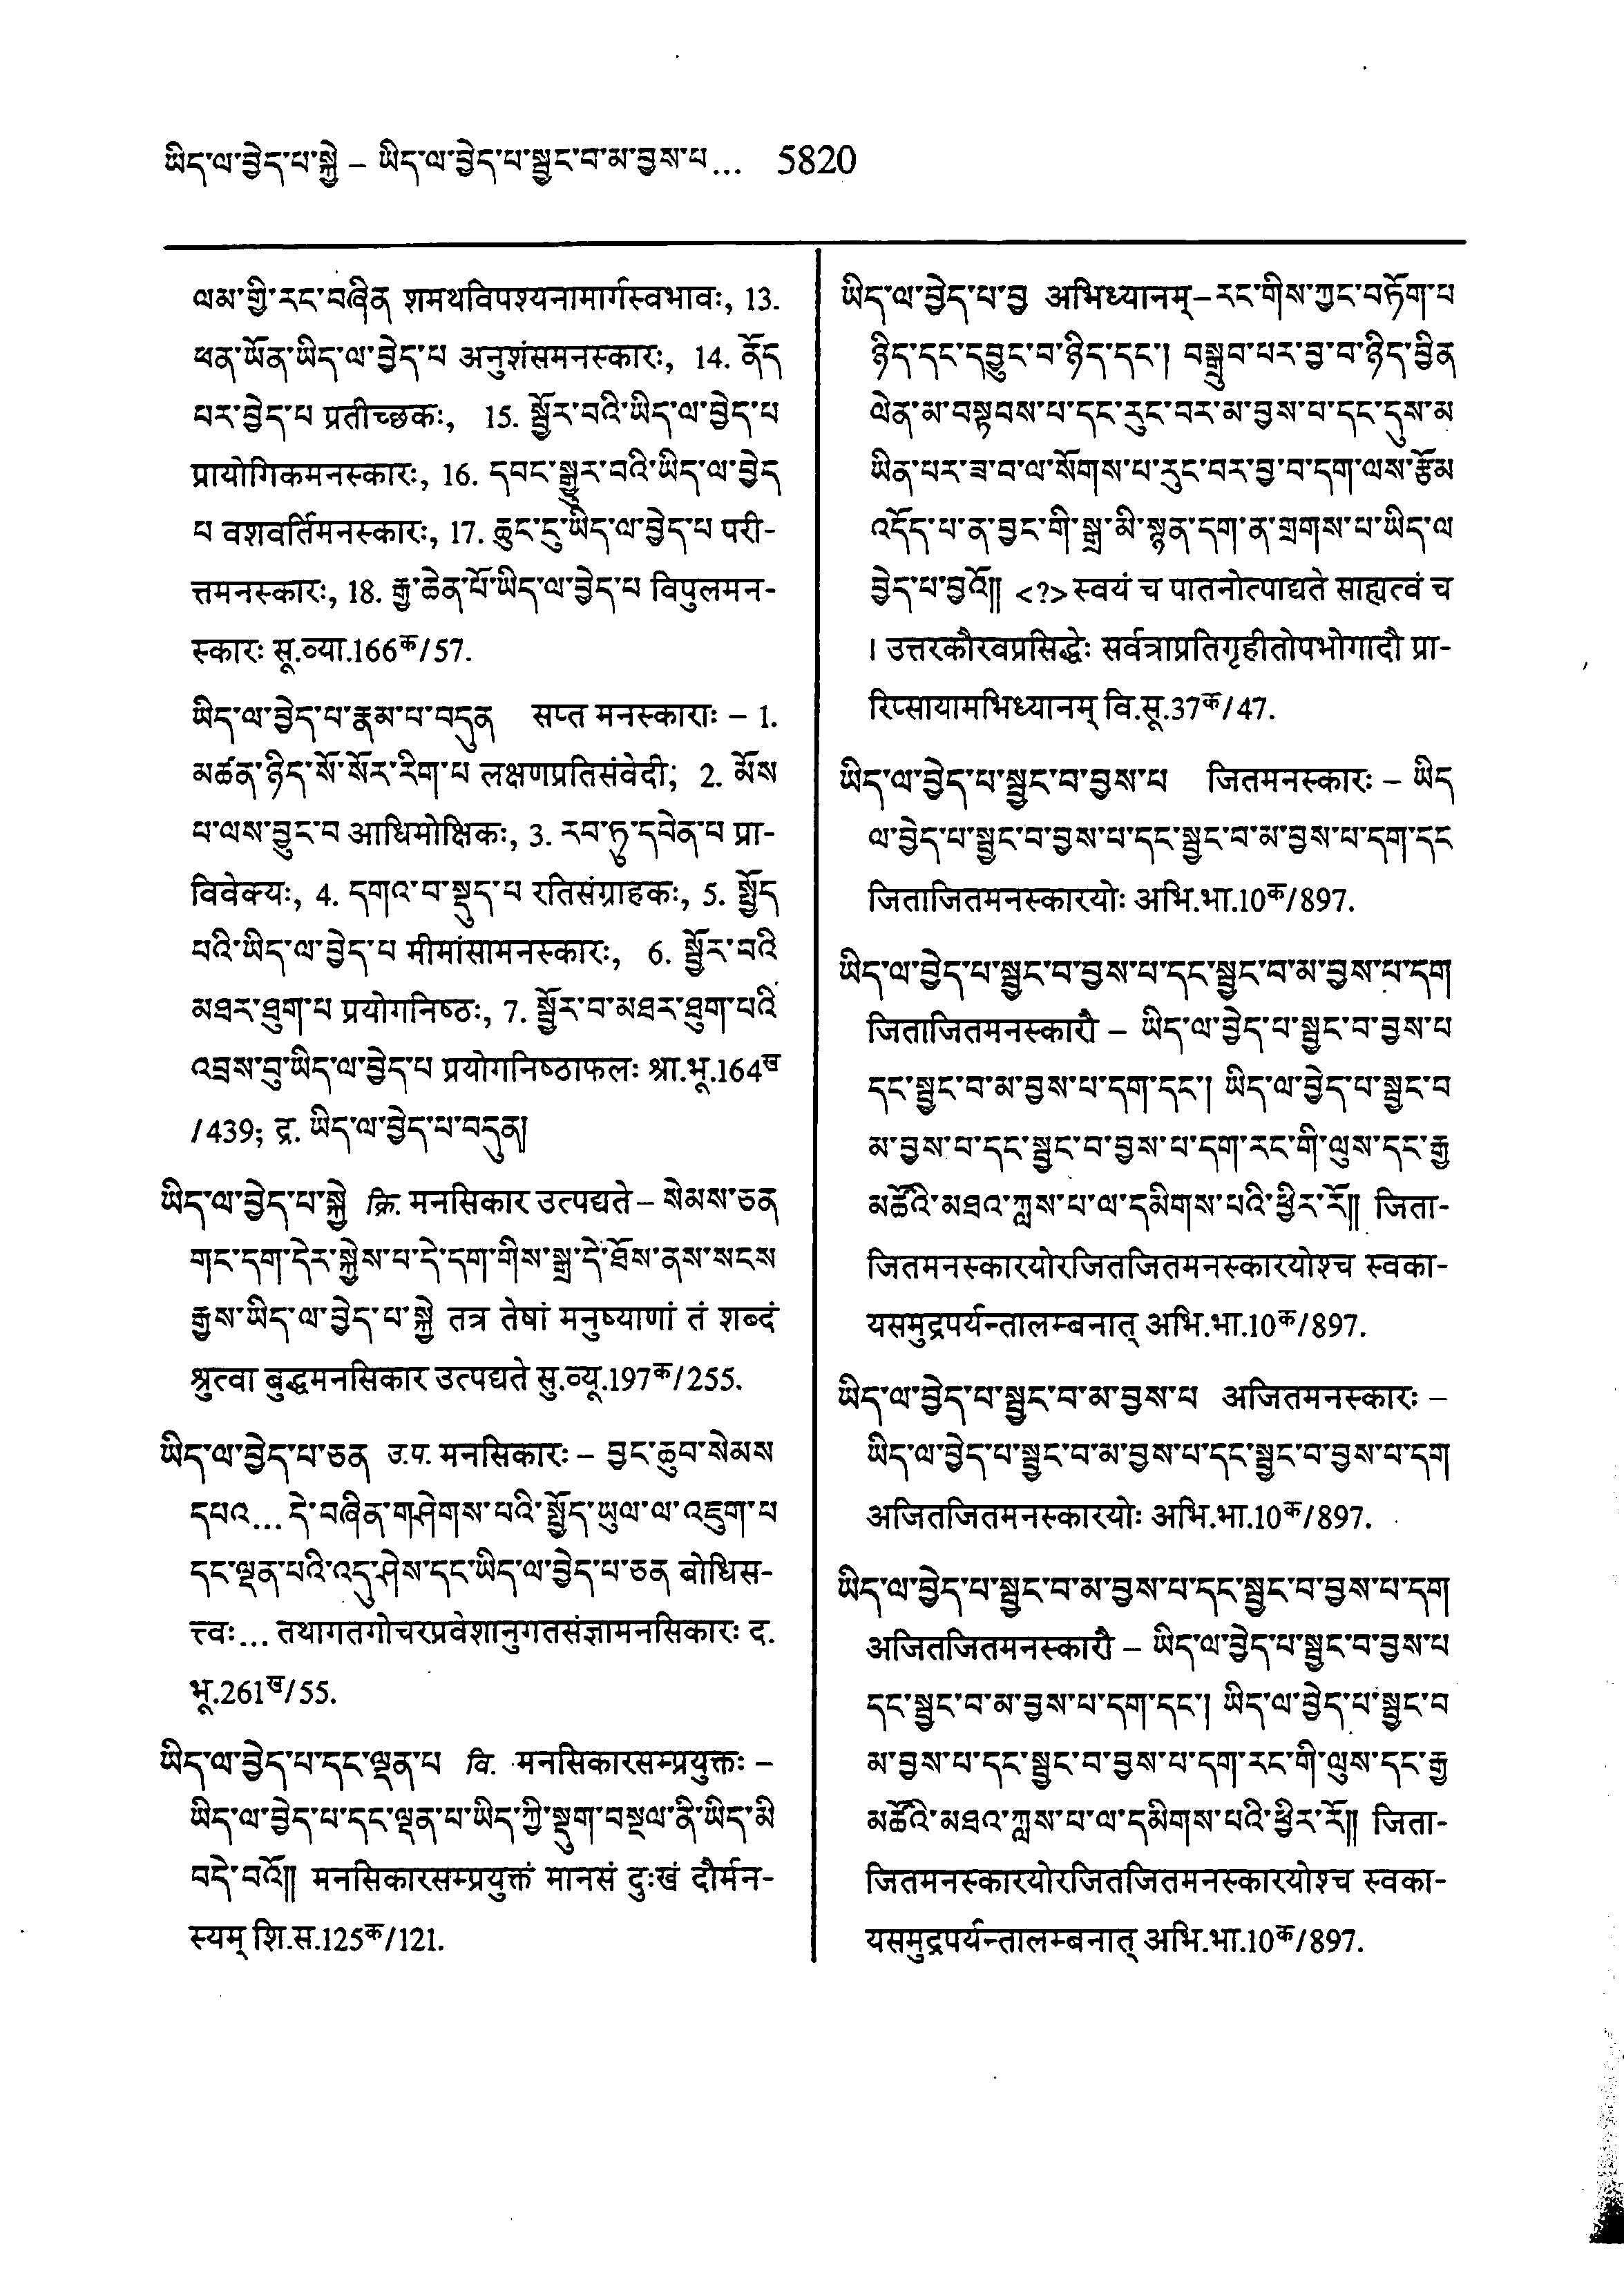 ཡིད་ལ་བྱེད་པ་སྐྱེ – ཡིད་ལ་བྱེད་པ་སྦྱང་བ་མ་བྱས་པ... 5820
ལམ་གྱི་རང་བཞིན शमथविपश्यनामार्गस्वभावः, 13.
ཕན་ཡོན་ཡིད་ལ་བྱེད་པ अनुशंसमनस्कारः, 14. ནོད
པར་བྱེད་པ प्रतीच्छकः, 15. སྦྱོར་བའི་ཡིད་ལ་བྱེད་པ
प्रायोगिकमनस्कारः, 16. དབང་སྒྱུར་བའི་ཡིད་ལ་བྱེད
པ वशवर्तिमनस्कारः, 17. ཆུང་ངུ་ཡིད་ལ་བྱེད་པ परी-
त्तमनस्कारः, 18. རྒྱ་ཆེན་པོ་ཡིད་ལ་བྱེད་པ विपुलमन-
स्कारः सू.व्या.166क/57.
ཡིད་ལ་བྱེད་པ་རྣམ་པ་བདུན सप्त मनस्काराः – 1.
མཚན་ཉིད་སོ་སོར་རིག་པ लक्षणप्रतिसंवेदी; 2. མོས
པ་ལས་བྱུང་བ आधिमोक्षिकः, 3. རབ་ཏུ་དབེན་པ प्रा-
विवेक्यः, 4. དགའ་བ་སྡུད་པ रतिसंग्राहकः, 5. སྤྱོད
པའི་ཡིད་ལ་བྱེད་པ मीमांसामनस्कारः, 6. སྦྱོར་བའི
མཐར་ཐུག་པ प्रयोगनिष्ठः, 7. སྦྱོར་བ་མཐར་ཐུག་པའི
འབྲས་བུ་ཡིད་ལ་བྱེད་པ प्रयोगनिष्ठाफलः श्रा.भू.164ख
/439; द्र. ཡིད་ལ་བྱེད་པ་བདུན།
ཡིད་ལ་བྱེད་པ་སྐྱེ क्रि. मनसिकार उत्पद्यते – སེམས་ཅན
གང་དག་དེར་སྐྱེས་པ་དེ་དག་གིས་སྒྲ་དེ་ཐོས་ནས་སངས
རྒྱས་ཡིད་ལ་བྱེད་པ་སྐྱེ तत्र तेषां मनुष्याणां तं शब्दं
श्रुत्वा बुद्धमनसिकार उत्पद्यते सु.व्यू.197क/255.
ཡིད་ལ་བྱེད་པ་ཅན उ.प. मनसिकारः – བྱང་ཆུབ་སེམས
དཔའ... དེ་བཞིན་གཤེགས་པའི་སྤྱོད་ཡུལ་ལ་འཇུག་པ
དང་ལྡན་པའི་འདུ་ཤེས་དང་ཡིད་ལ་བྱེད་པ་ཅན बोधिस-
त्त्वः... तथागतगोचरप्रवेशानुगतसंज्ञामनसिकारः द.
भू.261ख/55.
ཡིད་ལ་བྱེད་པ་དང་ལྡན་པ वि. मनसिकारसम्प्रयुक्तः –
ཡིད་ལ་བྱེད་པ་དང་ལྡན་པ་ཡིད་ཀྱི་སྡུག་བསྔལ་ནི་ཡིད་མི
བདེ་བའོ།། मनसिकारसम्प्रयुक्तं मानसं दुःखं दौर्मन-
स्यम् शि.स.125क/121.
ཡིད་ལ་བྱེད་པ་བྱ अभिध्यानम् – རང་གིས་ཀྱང་བཏོག་པ
ཉིད་དང་དབྱུང་བ་ཉིད་དང་། བསྒྲུབ་པར་བྱ་བ་ཉིད་བྱིན
ལེན་མ་བསྟབས་པ་དང་རུང་བར་མ་བྱས་པ་དང་དུས་མ
ཡིན་པར་ཟ་བ་ལ་སོགས་པ་རུང་བར་བྱ་བ་དག་ལས་རྩོམ
འདོད་པ་ན་བྱང་གི་སྒྲ་མི་སྙན་དག་ན་གྲགས་པ་ཡིད་ལ
བྱེད་པ་བྱའོ།། <?> स्वयं च पातनोत्पाद्यते साह्यत्वं च
। उत्तरकौरवप्रसिद्धेः सर्वत्राप्रतिगृहीतोपभोगादौ प्रा-
रिप्सायामभिध्यानम् वि.सू.37क/47.
ཡིད་ལ་བྱེད་པ་སྦྱང་བ་བྱས་པ जितमनस्कारः – ཡིད
ལ་བྱེད་པ་སྦྱང་བ་བྱས་པ་དང་སྦྱང་བ་མ་བྱས་པ་དག་དང
जिताजितमनस्कारयोः अभि.भा.10क/897.
ཡིད་ལ་བྱེད་པ་སྦྱང་བ་བྱས་པ་དང་སྦྱང་བ་མ་བྱས་པ་དག
जिताजितमनस्कारौ – ཡིད་ལ་བྱེད་པ་སྦྱང་བ་བྱས་པ
དང་སྦྱང་བ་མ་བྱས་པ་དག་དང་། ཡིད་ལ་བྱེད་པ་སྦྱང་བ
མ་བྱས་པ་དང་སྦྱང་བ་བྱས་པ་དག་རང་གི་ལུས་དང་རྒྱ
མཚོའི་མཐའ་ཀླས་པ་ལ་དམིགས་པའི་ཕྱིར་རོ།། जिता-
जितमनस्कारयोरजितजितमनस्कारयोश्च स्वका-
यसमुद्रपर्यन्तालम्बनात् अभि.भा.10क/897.
ཡིད་ལ་བྱེད་པ་སྦྱང་བ་མ་བྱས་པ अजितमनस्कारः –
ཡིད་ལ་བྱེད་པ་སྦྱང་བ་མ་བྱས་པ་དང་སྦྱང་བ་བྱས་པ་དག
अजितजितमनस्कारयोः अभि.भा.10क/897.
ཡིད་ལ་བྱེད་པ་སྦྱང་བ་མ་བྱས་པ་དང་སྦྱང་བ་བྱས་པ་དག
अजितजितमनस्कारौ – ཡིད་ལ་བྱེད་པ་སྦྱང་བ་བྱས་པ
དང་སྦྱང་བ་མ་བྱས་པ་དག་དང་། ཡིད་ལ་བྱེད་པ་སྦྱང་བ
མ་བྱས་པ་དང་སྦྱང་བ་བྱས་པ་དག་རང་གི་ལུས་དང་རྒྱ
མཚོའི་མཐའ་ཀླས་པ་ལ་དམིགས་པའི་ཕྱིར་རོ།། जिता-
जितमनस्कारयोरजितजितमनस्कारयोश्च स्वका-
यसमुद्रपर्यन्तालम्बनात् अभि.भा.10क/897.